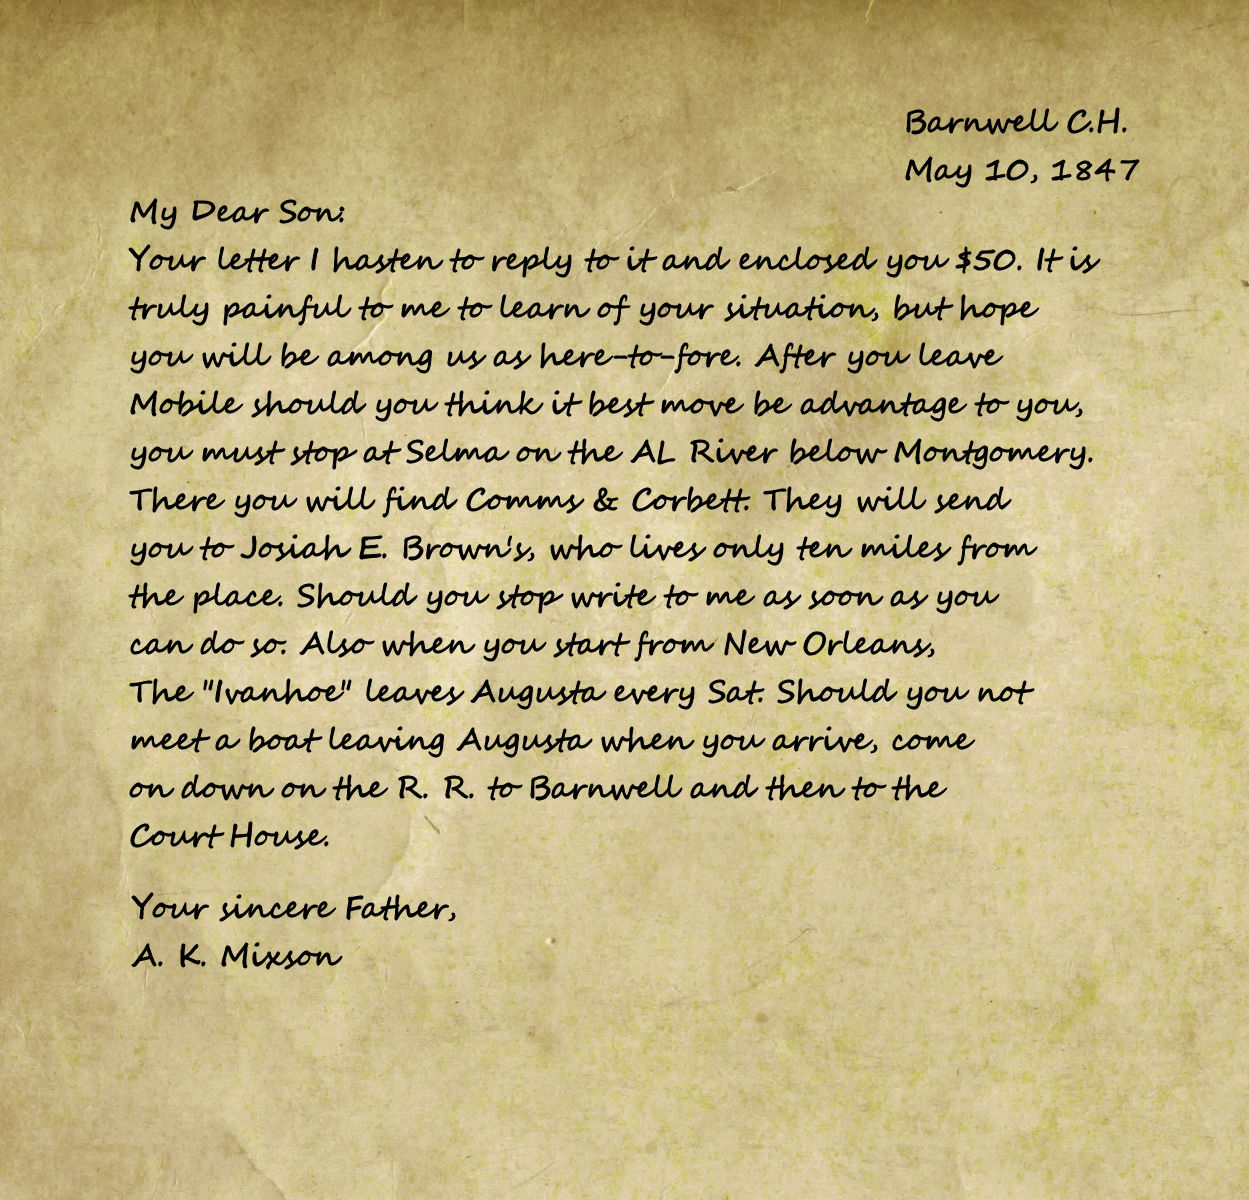 Barnwell C.H.
May 10, 1847
My Dear Son:
Your letter I hasten to reply to it and enclosed you $50. It is
truly painful to me to learn of your situation, but hope
you will be among us as here-to-fore. After you leave
Mobile should you think it best move be advantage to you,
you must stop at Selma on the AL River below Montgomery.
There you will find Comms & Corbett. They will send
you to Josiah E. Brown's, who lives only ten miles from
the place. Should you stop write to me as soon as you
can do so. Also when you start from New Orleans,
The "Ivanhoe" leaves Augusta every Sat. Should you not
meet a boat leaving Augusta when you arrive, come
on down on the R. R. to Barnwell and then to the
Court House.
Your sincere Father,
A. K. Mixson